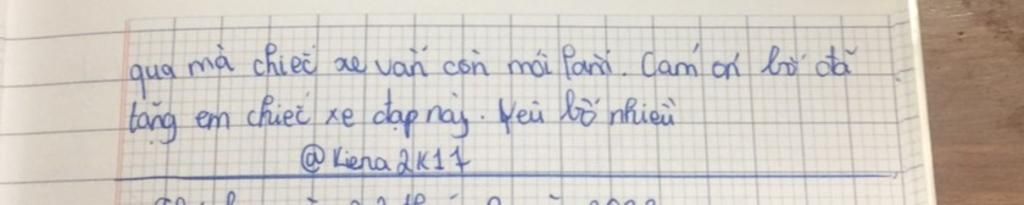 qua mà chiếc xe vẫn còn mới lắm. Cảm ơn bố đã
tặng em chiếc xe đạp này. Yêu bố nhiều
@Kiena2K11